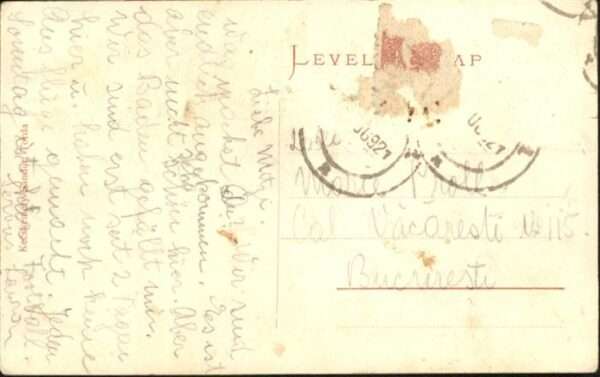 Liebe Mitzi.
was machst Du? Wir sind
endlich angekommen. Es ist
aber nicht schön hier. Aber
das Baden gefällt mir.
Wir sind erst seit 2 Tagen
hier u. haben noch keine
Ausflüge gemacht. Jeden
Sonntag ist
LEVEL AP
Marie
Cal Văcărești № 115.
București